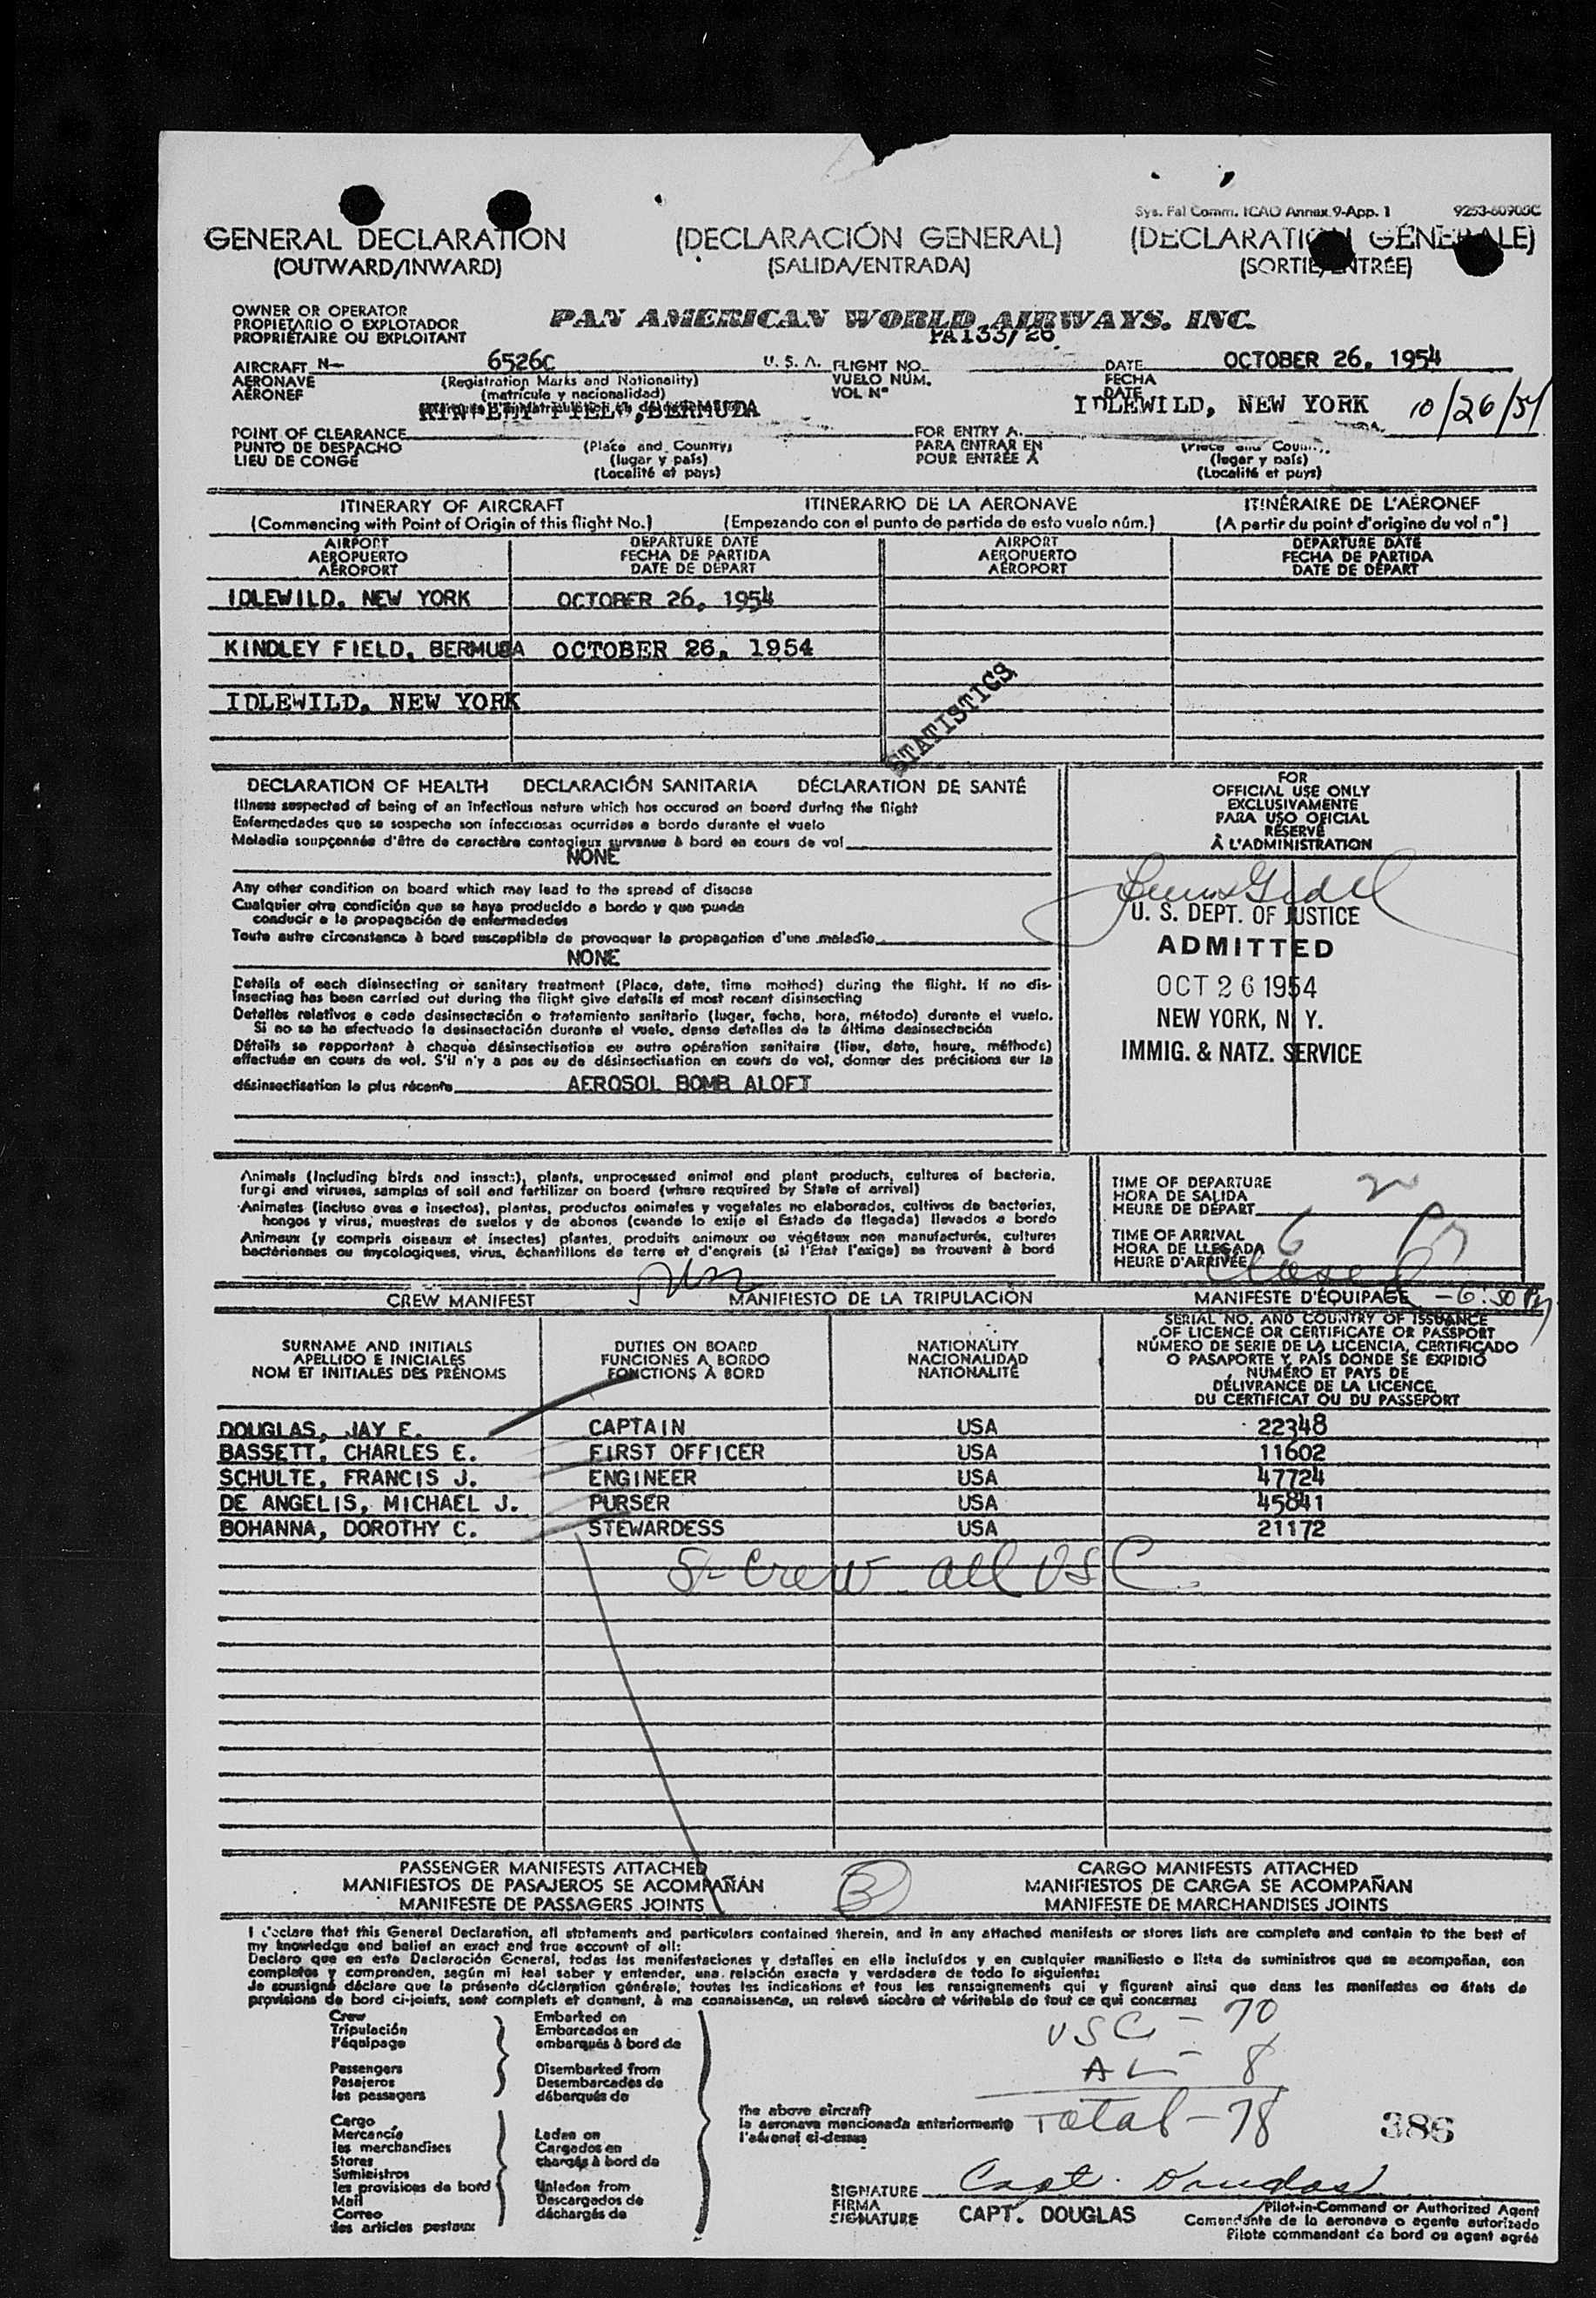 Sys. Fal Comm. ICAO Annex 9-App. 1 9253-60905C
GENERAL DECLARATION (DECLARACIÓN GENERAL) (DECLARATION GÉNÉRALE)
(OUTWARD/INWARD) (SALIDA/ENTRADA) (SORTIE/ENTRÉE)
OWNER OR OPERATOR
PROPIETARIO O EXPLOTADOR
PROPRIÉTAIRE OU EXPLOITANT
PAN AMERICAN WORLD AIRWAYS, INC.
PA133/26
AIRCRAFT N- 6526C U. S. A. FLIGHT NO. DATE OCTOBER 26, 1954
AERONAVE (Registration Marks and Nationality) VUELO NÚM. FECHA
AÉRONEF (matrícula y nacionalidad) VOL Nº DATE
KINDLEY FIELD, BERMUDA IDLEWILD, NEW YORK 10/26/54
POINT OF CLEARANCE (Place and Country) FOR ENTRY A
PUNTO DE DESPACHO (lugar y país) PARA ENTRAR EN (lugar y país)
LIEU DE CONGÉ (Localité et pays) POUR ENTRÉE À (Localité et pays)
ITINERARY OF AIRCRAFT ITINERARIO DE LA AERONAVE ITINÉRAIRE DE L'AÉRONEF
(Commencing with Point of Origin of this flight No.) (Empezando con el punto de partida de esto vuelo núm.) (A partir du point d'origine du vol nº)
AIRPORT DEPARTURE DATE AIRPORT DEPARTURE DATE
AEROPUERTO FECHA DE PARTIDA AEROPUERTO FECHA DE PARTIDA
AÉROPORT DATE DE DÉPART AÉROPORT DATE DE DÉPART
IDLEWILD, NEW YORK OCTOBER 26, 1954
KINDLEY FIELD, BERMUDA OCTOBER 26, 1954
IDLEWILD, NEW YORK
STATISTICS
DECLARATION OF HEALTH DECLARACIÓN SANITARIA DÉCLARATION DE SANTÉ
Illness suspected of being of an infectious nature which has occured on board during the flight
Enfermedades que se sospeche son infecciosas ocurridas a bordo durante el vuelo
Maladie soupçonnée d'être de caractère contagieux survenue à bord en cours de vol
NONE
Any other condition on board which may lead to the spread of disease
Cualquier otra condición que se haya producido a bordo y que pueda
conducir a la propagación de enfermedades
Toute autre circonstance à bord susceptible de provoquer la propagation d'une maladie
NONE
Details of each disinsecting or sanitary treatment (Place, date, time method) during the flight. If no dis-
insecting has been carried out during the flight give details of most recent disinsecting
Detalles relativos a cada desinsectación o tratamiento sanitario (lugar, fecha, hora, método) durante el vuelo.
Si no se ha efectuado la desinsectación durante el vuelo, dense detalles de la última desinsectación
Détails se rapportant à chaque désinsectisation ou autre opération sanitaire (lieu, date, heure, méthode)
effectuée en cours de vol. S'il n'y a pas eu de désinsectisation en cours de vol, donner des précisions sur la
désinsectisation la plus récente AEROSOL BOMB ALOFT
FOR
OFFICIAL USE ONLY
EXCLUSIVAMENTE
PARA USO OFICIAL
RÉSERVÉ
À L'ADMINISTRATION
U. S. DEPT. OF JUSTICE
ADMITTED
OCT 26 1954
NEW YORK, N. Y.
IMMIG. & NATZ. SERVICE
Animals (Including birds and insects), plants, unprocessed animal and plant products, cultures of bacteria,
fungi and viruses, samples of soil and fertilizer on board (where required by State of arrival)
Animales (incluso aves e insectos), plantas, productos animales y vegetales no elaborados, cultivos de bacterias,
hongos y virus, muestras de suelos y de abonos (cuando lo exija el Estado de llegada) llevados a bordo
Animaux (y compris oiseaux et insectes) plantes, produits animaux ou végétaux non manufacturés, cultures
bactériennes ou mycologiques, virus, échantillons de terre et d'engrais (si l'Etat l'exige) se trouvant à bord
TIME OF DEPARTURE
HORA DE SALIDA
HEURE DE DÉPART
TIME OF ARRIVAL
HORA DE LLEGADA 6 PM
HEURE D'ARRIVÉE
CREW MANIFEST MANIFIESTO DE LA TRIPULACIÓN MANIFESTE D'ÉQUIPAGE - 6:50 PM
SURNAME AND INITIALS DUTIES ON BOARD NATIONALITY SERIAL NO. AND COUNTRY OF ISSUANCE
APELLIDO E INICIALES FUNCIONES A BORDO NACIONALIDAD OF LICENCE OR CERTIFICATE OR PASSPORT
NOM ET INITIALES DES PRÉNOMS FONCTIONS À BORD NATIONALITÉ NÚMERO DE SERIE DE LA LICENCIA, CERTIFICADO
O PASAPORTE Y PAÍS DONDE SE EXPIDIÓ
NUMÉRO ET PAYS DE
DÉLIVRANCE DE LA LICENCE,
DU CERTIFICAT OU DU PASSEPORT
DOUGLAS, JAY E. CAPTAIN USA 22348
BASSETT, CHARLES E. FIRST OFFICER USA 11602
SCHULTE, FRANCIS J. ENGINEER USA 47724
DE ANGELIS, MICHAEL J. PURSER USA 45841
BOHANNA, DOROTHY C. STEWARDESS USA 21172
5- Crew all USC
PASSENGER MANIFESTS ATTACHED CARGO MANIFESTS ATTACHED
MANIFIESTOS DE PASAJEROS SE ACOMPAÑAN 3 MANIFIESTOS DE CARGA SE ACOMPAÑAN
MANIFESTE DE PASSAGERS JOINTS MANIFESTE DE MARCHANDISES JOINTS
I declare that this General Declaration, all statements and particulars contained therein, and in any attached manifests or stores lists are complete and contain to the best of
my knowledge and belief an exact and true account of all:
Declaro que en esta Declaración General, todas las manifestaciones y detalles en ella incluídos y en cualquier manifiesto o lista de suministros que se acompañan, son
completos y comprenden, según mi leal saber y entender, una relación exacta y verdadera de todo lo siguiente:
Je soussigné déclare que la présente déclaration générale, toutes les indications et tous les renseignements qui y figurent ainsi que dans les manifestes ou états de
provisions de bord ci-joints, sont complets et donnent, à ma connaissance, un relevé sincère et véritable de tout ce qui concerne:
Crew Embarked on
Tripulación Embarcados en
l'équipage embarqués à bord de
Passengers Disembarked from
Pasajeros Desembarcados de
les passagers débarqués de
Cargo
Mercancía Laden on
les merchandises Cargados en
Stores chargés à bord de
Suministros
les provisions de bord Unladen from
Mail Descargados de
Correo déchargés de
les articles postaux
the above aircraft
la aeronave mencionada anteriormente
l'aéronef ci-dessus
USC - 70
AL - 8
Total - 78
386
SIGNATURE Capt. Douglas
FIRMA CAPT. DOUGLAS Pilot-in-Command or Authorized Agent
SIGNATURE Comandante de la aeronave o agente autorizado
Pilote commandant de bord ou agent agréé